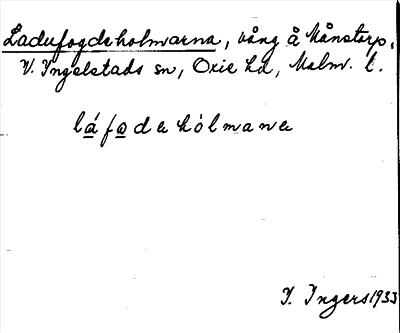 Ladufogdeholmarna, vång å Månstorp,
V. Ingelstads sn, Oxie hd, Malm. l.
láfode hólmana
I. Ingers 1933